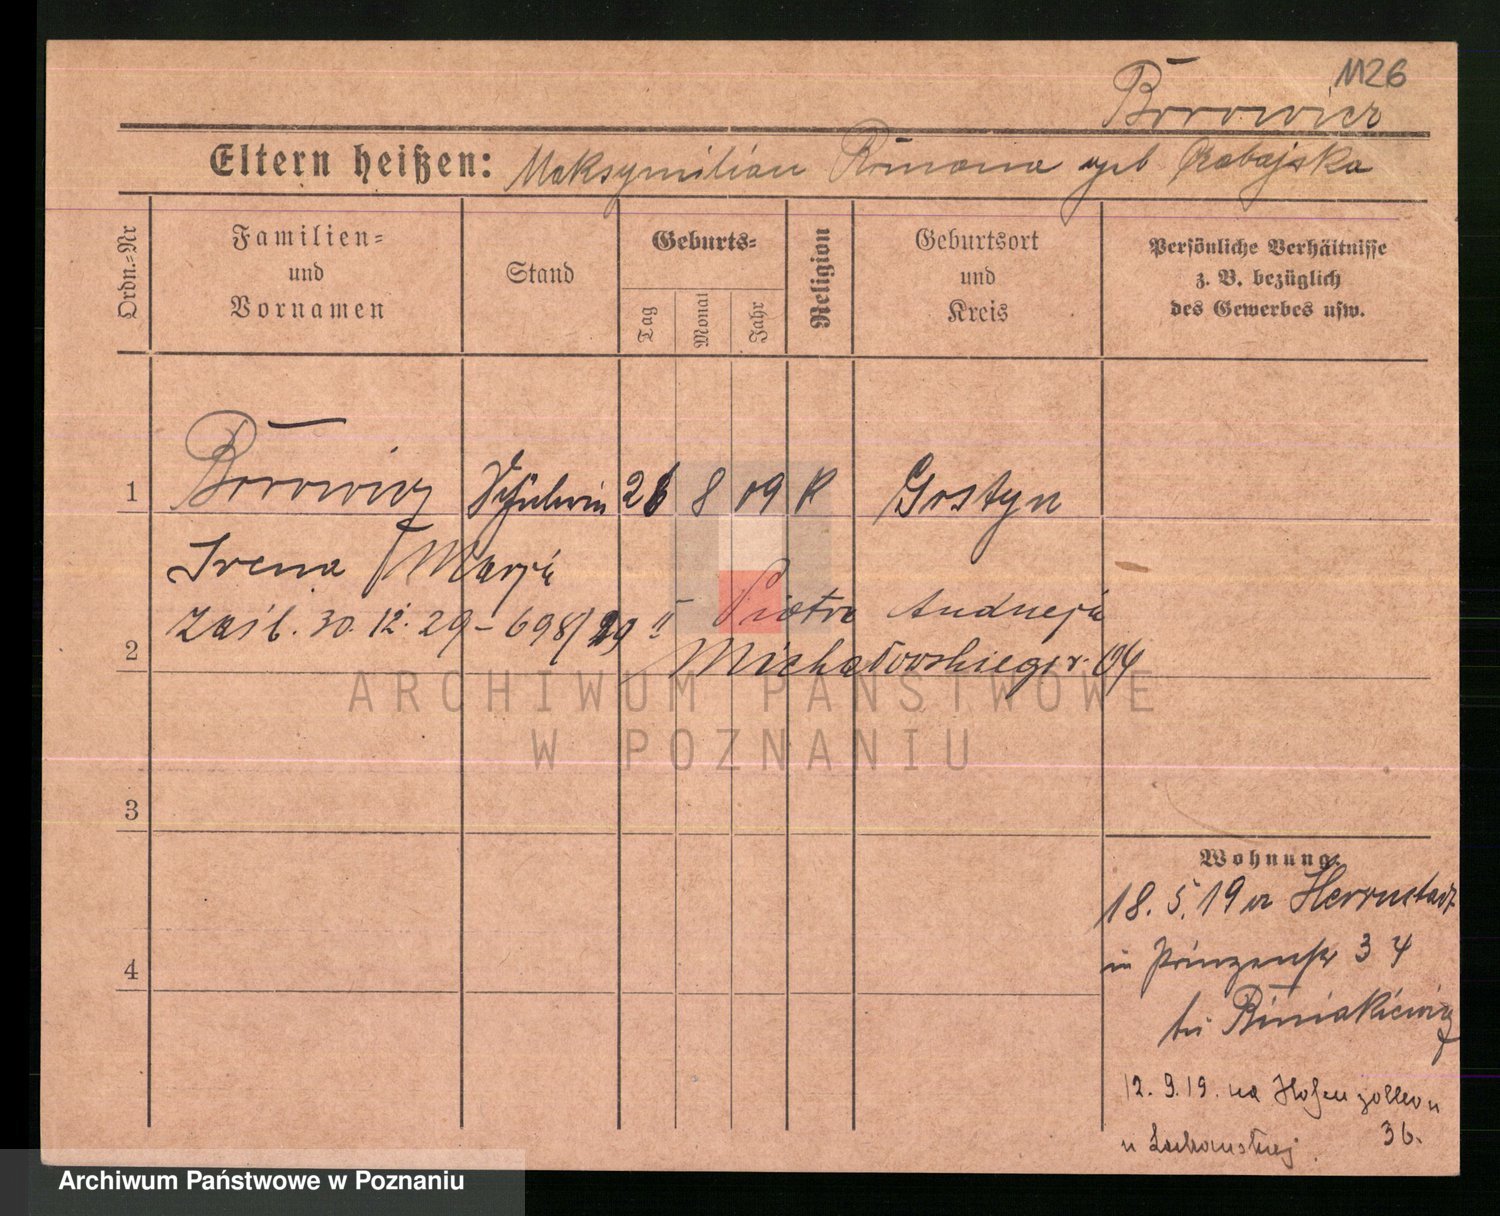 1126
Borowicz
Eltern heißen: Maksymilian Romana
Ordn.=Nr
Familien=
und
Vornamen
Stand
Geburts=
Tag
Monat
Jahr
Religion
Geburtsort
und
Kreis
Persönliche Verhältnisse
z. B. bezüglich
des Gewerbes usw.
1 Borowicz Schülerin 26 8 09 K Gostyn
Irena Marja
zaśl. 30. 12. 29 – 698/29 II Piotra Andrzeja
2 Michałowskiego r. 04
ARCHIWUM PAŃSTWOWE
W POZNANIU
3
Wohnung.
18. 5. 19 Herrnstadt
4 in Prinzenstr 34
bei
12. 9. 19. na Hohenzollern
36.
u
Archiwum Państwowe w Poznaniu